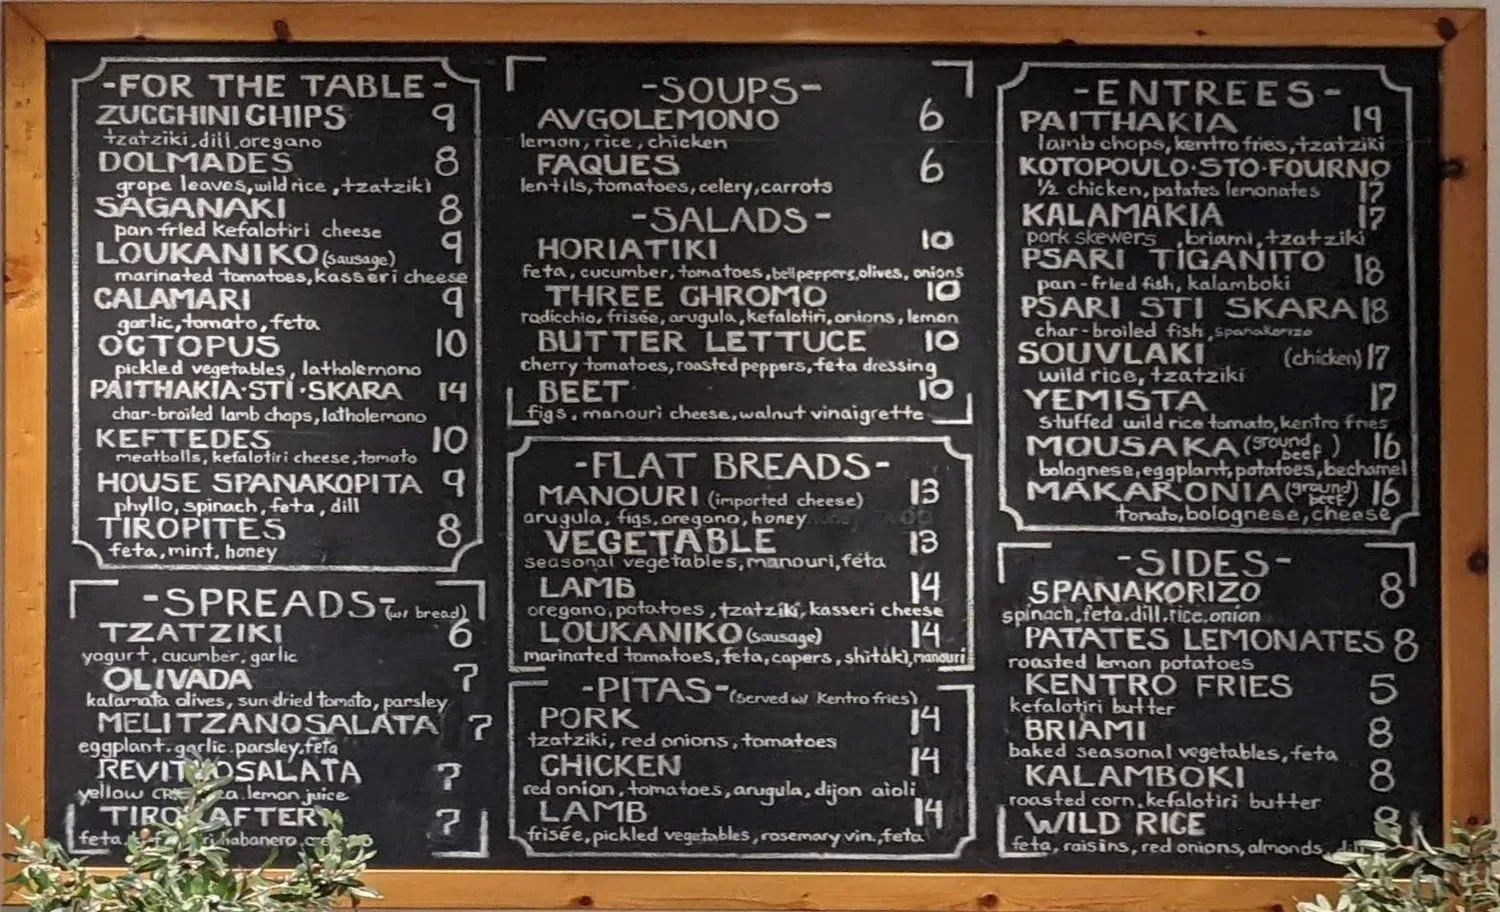 -FOR THE TABLE-
ZUCCHINI CHIPS 9
tzatziki, dill, oregano
DOLMADES 8
grape leaves, wild rice, tzatziki
SAGANAKI 8
pan fried kefalotiri cheese
LOUKANIKO (sausage) 9
marinated tomatoes, kasseri cheese
CALAMARI 9
garlic, tomato, feta
OCTOPUS 10
pickled vegetables, latholemono
PAITHAKIA·STI·SKARA 14
char-broiled lamb chops, latholemono
KEFTEDES 10
meatballs, kefalotiri cheese, tomato
HOUSE SPANAKOPITA 9
phyllo, spinach, feta, dill
TIROPITES 8
feta, mint, honey
-SPREADS- (w/ bread)
TZATZIKI 6
yogurt, cucumber, garlic
OLIVADA 7
kalamata olives, sun dried tomato, parsley
MELITZANOSALATA 7
eggplant, garlic, parsley, feta
7
yellow lemon juice
7
feta, habanero
-SOUPS-
AVGOLEMONO 6
lemon, rice, chicken
FAQUES 6
lentils, tomatoes, celery, carrots
-SALADS-
HORIATIKI 10
feta, cucumber, tomatoes, bell peppers, olives, onions
THREE CHROMO 10
radicchio, frisée, arugula, kefalotiri, onions, lemon
BUTTER LETTUCE 10
cherry tomatoes, roasted peppers, feta dressing
BEET 10
figs, manouri cheese, walnut vinaigrette
-FLAT BREADS-
MANOURI (imported cheese) 13
arugula, figs, oregano, honey
VEGETABLE 13
seasonal vegetables, manouri, feta
LAMB 14
oregano, potatoes, tzatziki, kasseri cheese
LOUKANIKO (sausage) 14
marinated tomatoes, feta, capers, shitaki, manouri
-PITAS- (served w/ Kentro fries)
PORK 14
tzatziki, red onions, tomatoes
CHICKEN 14
red onion, tomatoes, arugula, dijon aioli
LAMB 14
frisée, pickled vegetables, rosemary vin, feta
-ENTREES-
PAITHAKIA 19
lamb chops, kentro fries, tzatziki
KOTOPOULO·STO·FOURNO
½ chicken, patates lemonates 17
KALAMAKIA 17
pork skewers, briami, tzatziki
PSARI TIGANITO 18
pan-fried fish, kalamboki
PSARI STI SKARA 18
char-broiled fish, spanakorizo
SOUVLAKI (chicken) 17
wild rice, tzatziki
YEMISTA 17
stuffed wild rice tomato, kentro fries
MOUSAKA (ground beef) 16
bolognese, eggplant, potatoes, bechamel
MAKARONIA (ground beef) 16
tomato, bolognese, cheese
-SIDES-
SPANAKORIZO 8
spinach, feta, dill, rice, onion
PATATES LEMONATES 8
roasted lemon potatoes
KENTRO FRIES 5
kefalotiri butter
BRIAMI 8
baked seasonal vegetables, feta
KALAMBOKI 8
roasted corn, kefalotiri butter
WILD RICE 8
feta, raisins, red onions, almonds, dill